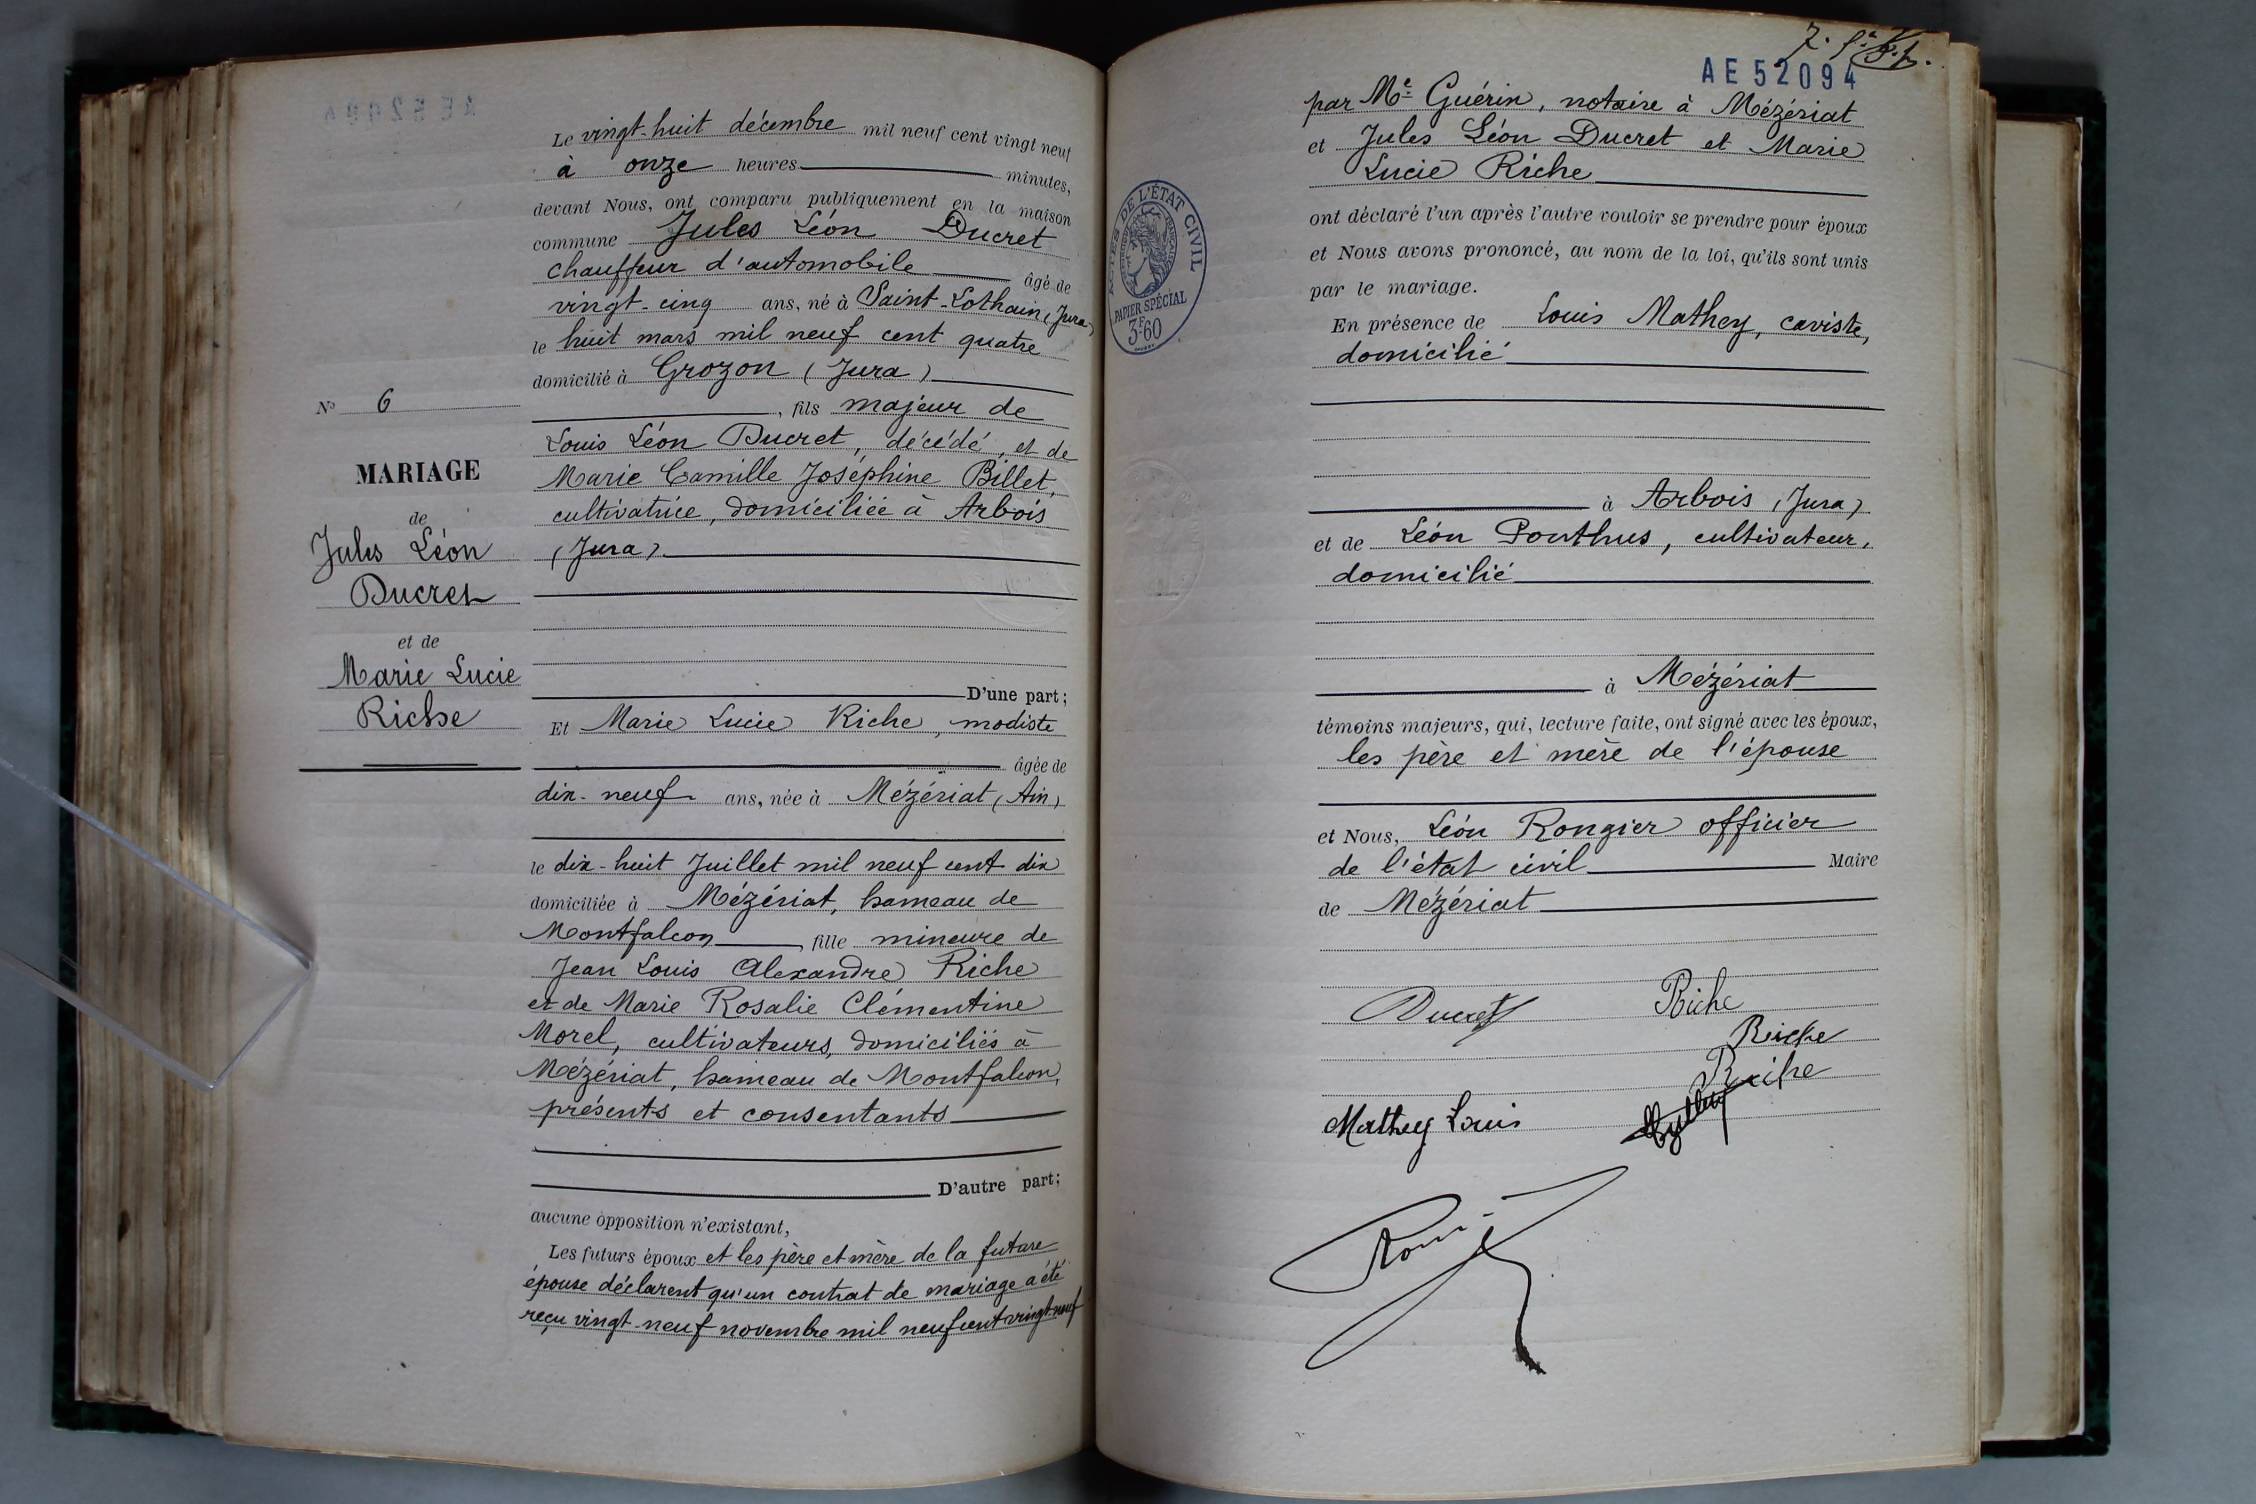 Le vingt-huit décembre mil neuf cent vingt neuf
à onze heures minutes,
devant Nous, ont comparu publiquement en la maison
commune Jules Léon Ducret
chauffeur d'automobile âgé de
vingt-cinq ans, né à Saint-Lothain (Jura)
le huit mars mil neuf cent quatre
domicilié à Grozon (Jura)
, fils majeur de
Louis Léon Ducret, décédé, et de
Marie Camille Joséphine Billet,
cultivatrice, domiciliée à Arbois
(Jura)
D'une part;
Et Marie Lucie Riche, modiste
âgée de
dix-neuf ans, née à Mézériat (Ain)
le dix-huit Juillet mil neuf cent dix
domiciliée à Mézériat, hameau de
Montfalcon fille mineure de
Jean Louis Alexandre Riche
et de Marie Rosalie Clémentine
Morel, cultivateurs, domiciliés à
Mézériat, hameau de Montfalcon,
présents et consentants
D'autre part;
aucune opposition n'existant,
Les futurs époux et les père et mère de la future
épouse déclarent qu'un contrat de mariage a été
reçu vingt-neuf novembre mil neuf cent vingt-neuf
N° 6
MARIAGE
de
Jules Léon
Ducret
et de
Marie Lucie
Riche
AE 52094
par Me Guérin, notaire à Mézériat
et Jules Léon Ducret et Marie
Lucie Riche
ont déclaré l'un après l'autre vouloir se prendre pour époux
et Nous avons prononcé, au nom de la loi, qu'ils sont unis
par le mariage.
En présence de Louis Mathey, caviste,
domicilié
à Arbois (Jura)
et de Léon Ponthus, cultivateur,
domicilié
à Mézériat
témoins majeurs, qui, lecture faite, ont signé avec les époux,
les père et mère de l'épouse
et Nous, Léon Rongier officier
de l'état civil Maire
de Mézériat
Ducret Riche
Riche
Riche
Mathey Louis
ACTES DE L'ÉTAT CIVIL
PAPIER SPÉCIAL
3F60